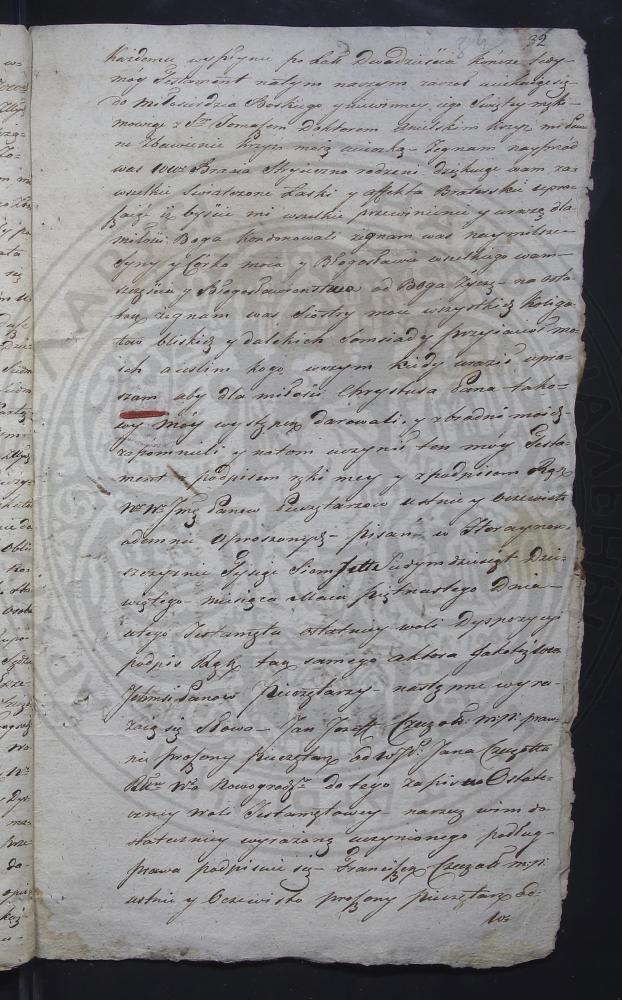 32
każdemu wypłynie po lat Dwadzieścia kończe tedy
moy Testament natym naszym zaraz uciekając się
do miłosierdzia Boskiego y niewinney iego Swiętey męki
mowiąc z S. Tomaszem Doktorem Anielskim krzyż mi Pan-
ne zbawienie krzyż moią ucieczką Zegnam nayprzod
was Bracia Stryieczno rodzeni dziękuię wam za
wszelkie Swiatczone Łaski y affekta Braterskie uprasza-
iąc iż byście mi wszelkie przewinienie y urazę dla
miłości Boga kondonowali zegnam was naymilsze
Syny y Corko moia y Błogosławię wszelkiego wam
szczęścia y Błogosławienstwa od Boga życzę na osta-
tek zegnam was Siostry moie wszystkich koliga-
tow bliskich y dalekich Somsiady przyiacioł mo-
ich a ieslim kogo w czym kiedy uraził upra-
szam aby dla miłości Chrystusa Pana tako-
wy moy występek darowali, y zbrodni moich
zapomnieli y natom uczynił ten moy Testa-
ment podpisem ręki mey y z podpisem Rąk
Ww. Jmć Panow Pieczętarzow ustnie y Oczewisto
odemnie uproszonych pisan w Horayno-
szczyznie Tysiąc Siedm Set Siedymdziesiąt Dzie-
wiątego miesiąca Maia piętnastego Dnia
u tego Testamętu ostatniey woli Dyspozycyi
podpis Rąk tak samego aktora iako też
Ichmsć Panow Pieczętarzy następne wyra-
żaią się Słowa Jan Jozeff mp. praw-
nie proszony pieczętarz od WJP. Jana
Wa Nowogrodz. do tego zapisu Ostate-
czney woli Testamętowey naszey wim do-
statecznie wyrażoną uczynionego podług
prawa podpisuię się Franciszek mp.
ustnie y Oczewisto proszony Pieczętarz od